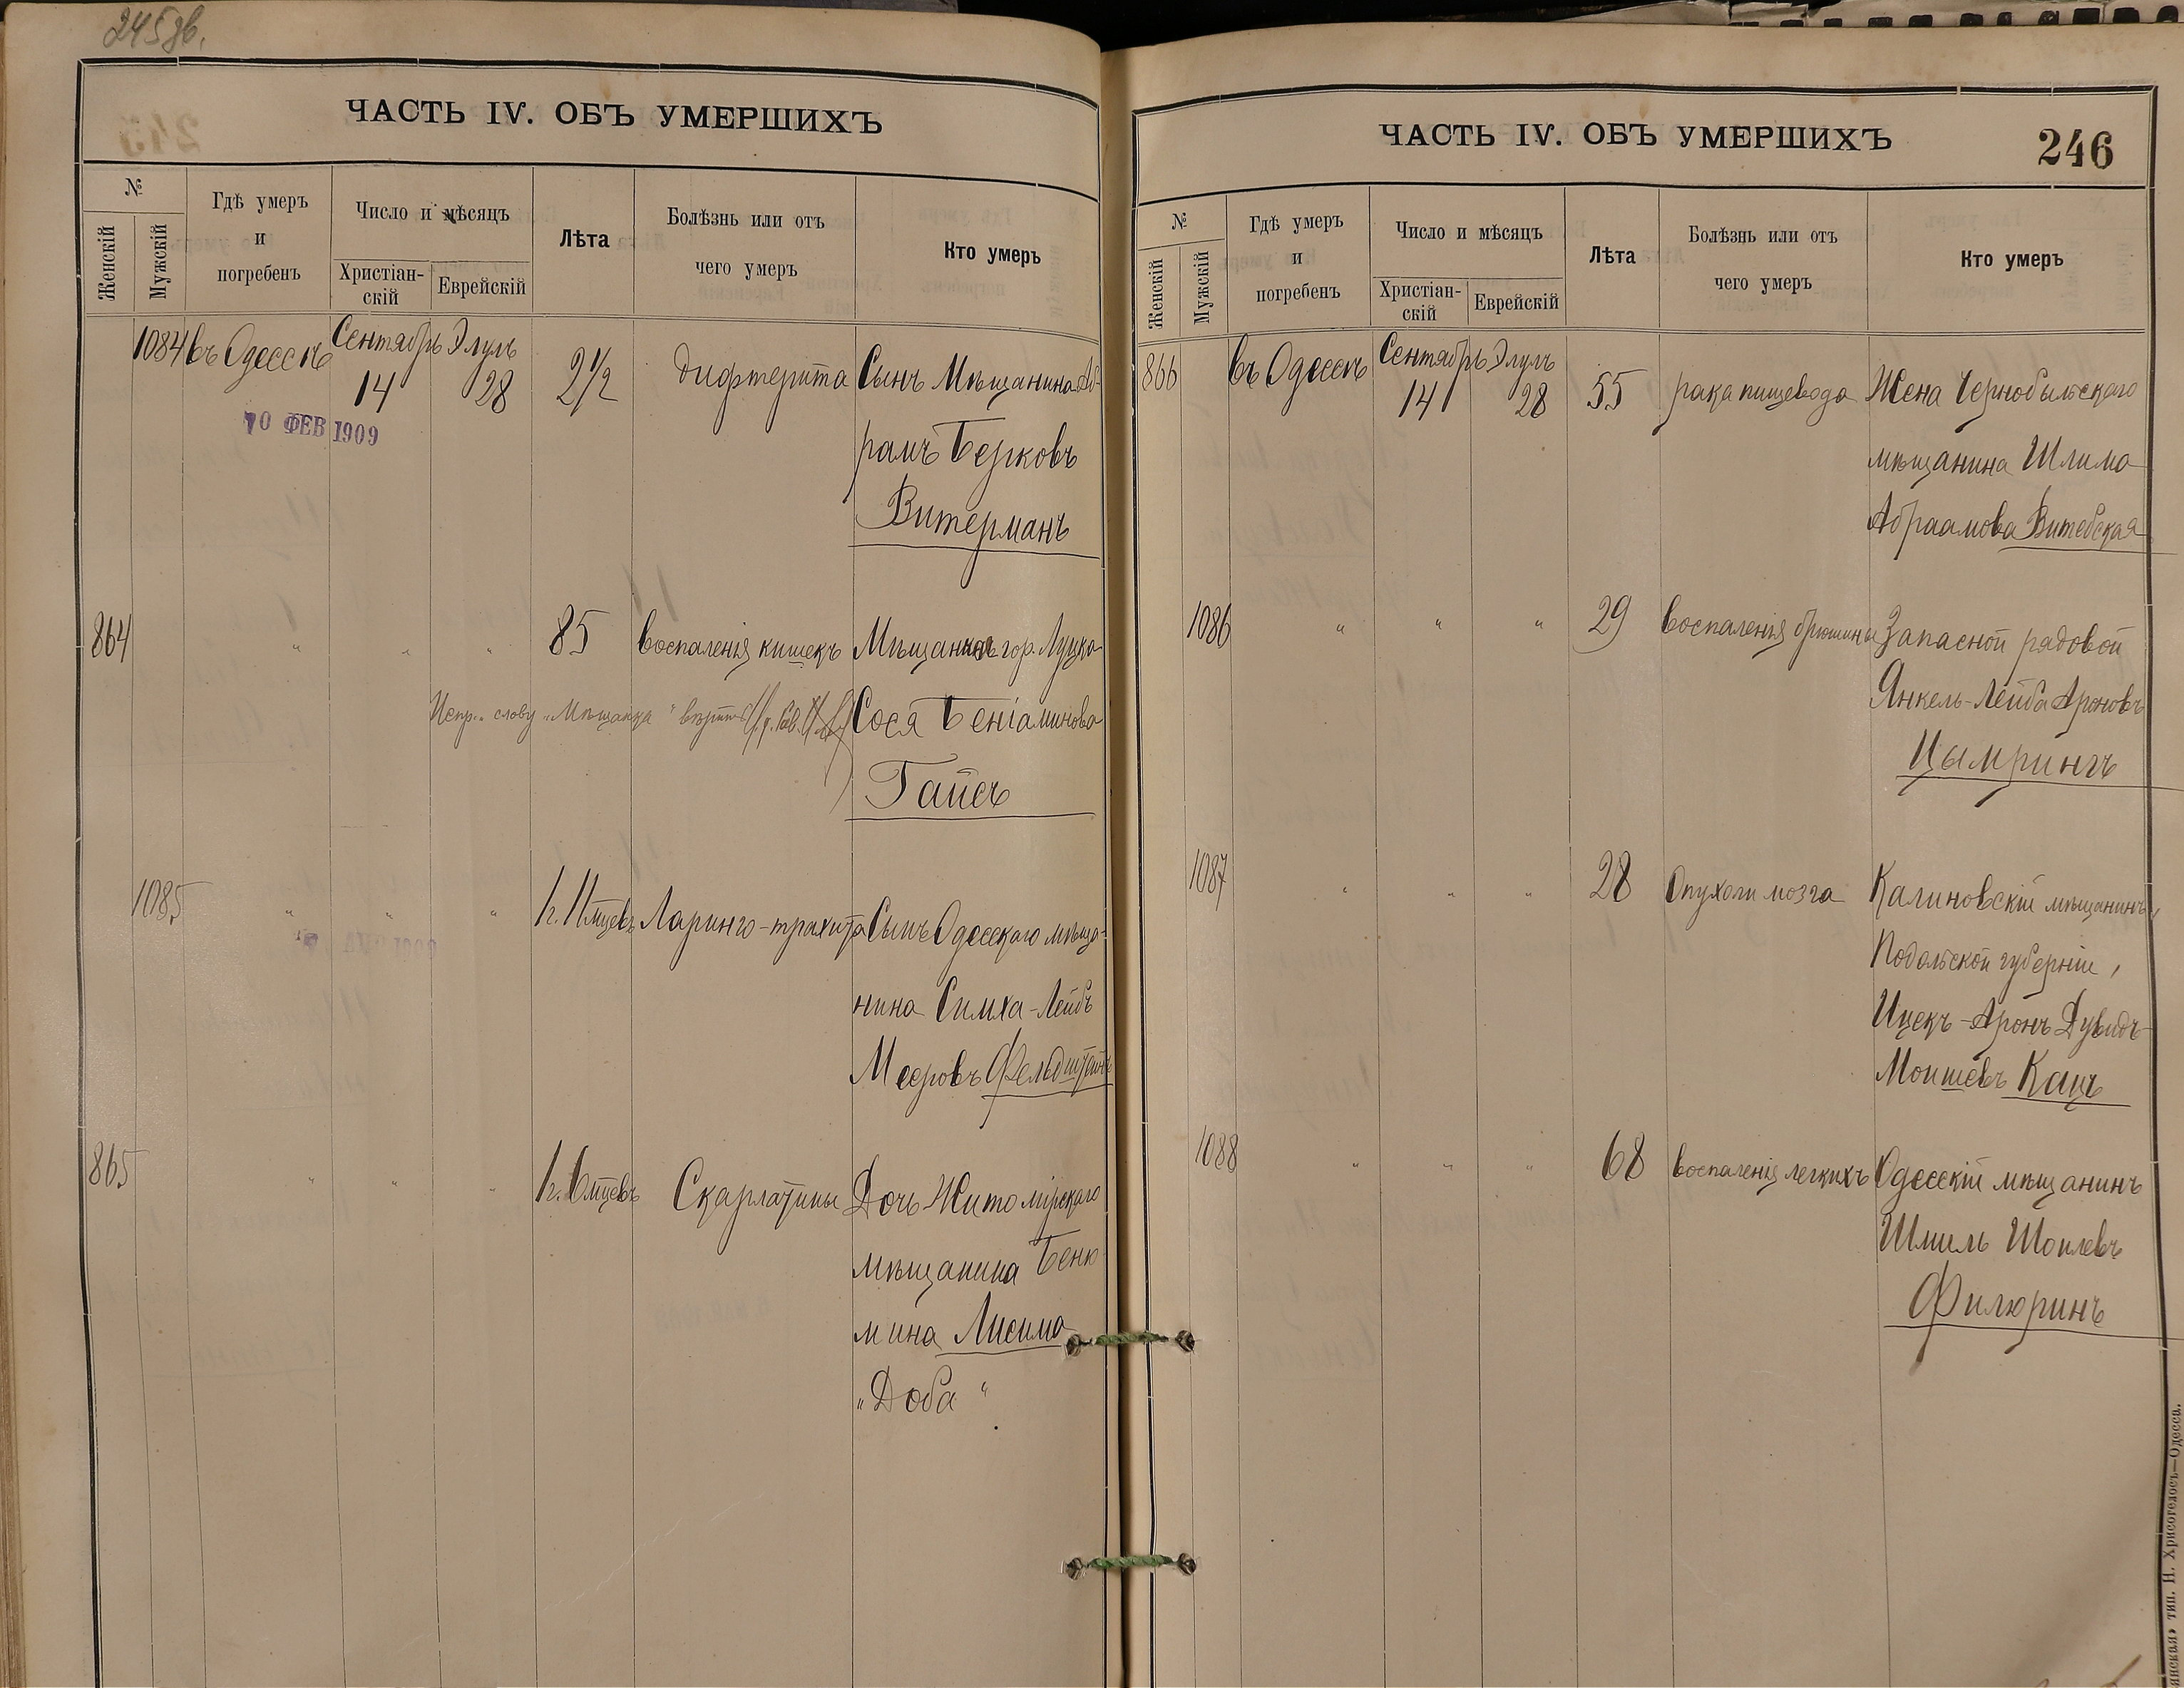 245 зв.
ЧАСТЬ IV. ОБЪ УМЕРШИХЪ
№
Женскій
Мужскій
Гдѣ умеръ
и
погребенъ
Число и мѣсяцъ
Христіан-
скій
Еврейскій
Лѣта
Болѣзнь или отъ
чего умеръ
Кто умеръ
1084 въ Одессѣ Сентябрь 14 Элулъ 28 2½ дифтерита Сынъ Мѣщанина Аб-
рамъ Берковъ
Витерманъ
10 ФЕВ 1909
864 " " " 85 воспаленія кишекъ Мѣщанка гор. Луцка
Сося Беніаминова
Гайсъ
Испр. слову "Мѣщанка" вѣрить
1085 " " " 1 г. 11 мцевъ Ларинго-трахита Сынъ Одесскаго мѣща-
нина Симха-Лейбъ
Мееровъ Фельдштейнъ
865 " " " 1 г. 6 мцевъ Скарлатины Дочь Житомірскаго
мѣщанина Беню-
мина Лисима
"Доба"
ЧАСТЬ IV. ОБЪ УМЕРШИХЪ
246
№
Женскій
Мужскій
Гдѣ умеръ
и
погребенъ
Число и мѣсяцъ
Христіан-
скій
Еврейскій
Лѣта
Болѣзнь или отъ
чего умеръ
Кто умеръ
866 въ Одессѣ Сентябрь 14 Элулъ 28 55 рака пищевода Жена Чернобыльскаго
мѣщанина Шлима
Абраамова Витебская
1086 " " " 29 воспаленія брюшины Запасной рядовой
Янкель-Лейба Ароновъ
Цымрингъ
1087 " " " 28 Опухоли мозга Калиновскій мѣщанинъ,
Подольской губерніи,
Ицекъ-Аронъ Дувидъ-
Моишевъ Кацъ
1088 " " " 68 воспаленія легкихъ Одесскій мѣщанинъ
Шмиль Шоилевъ
Филюринъ
тип. Н. Хрисогелосъ—Одесса.